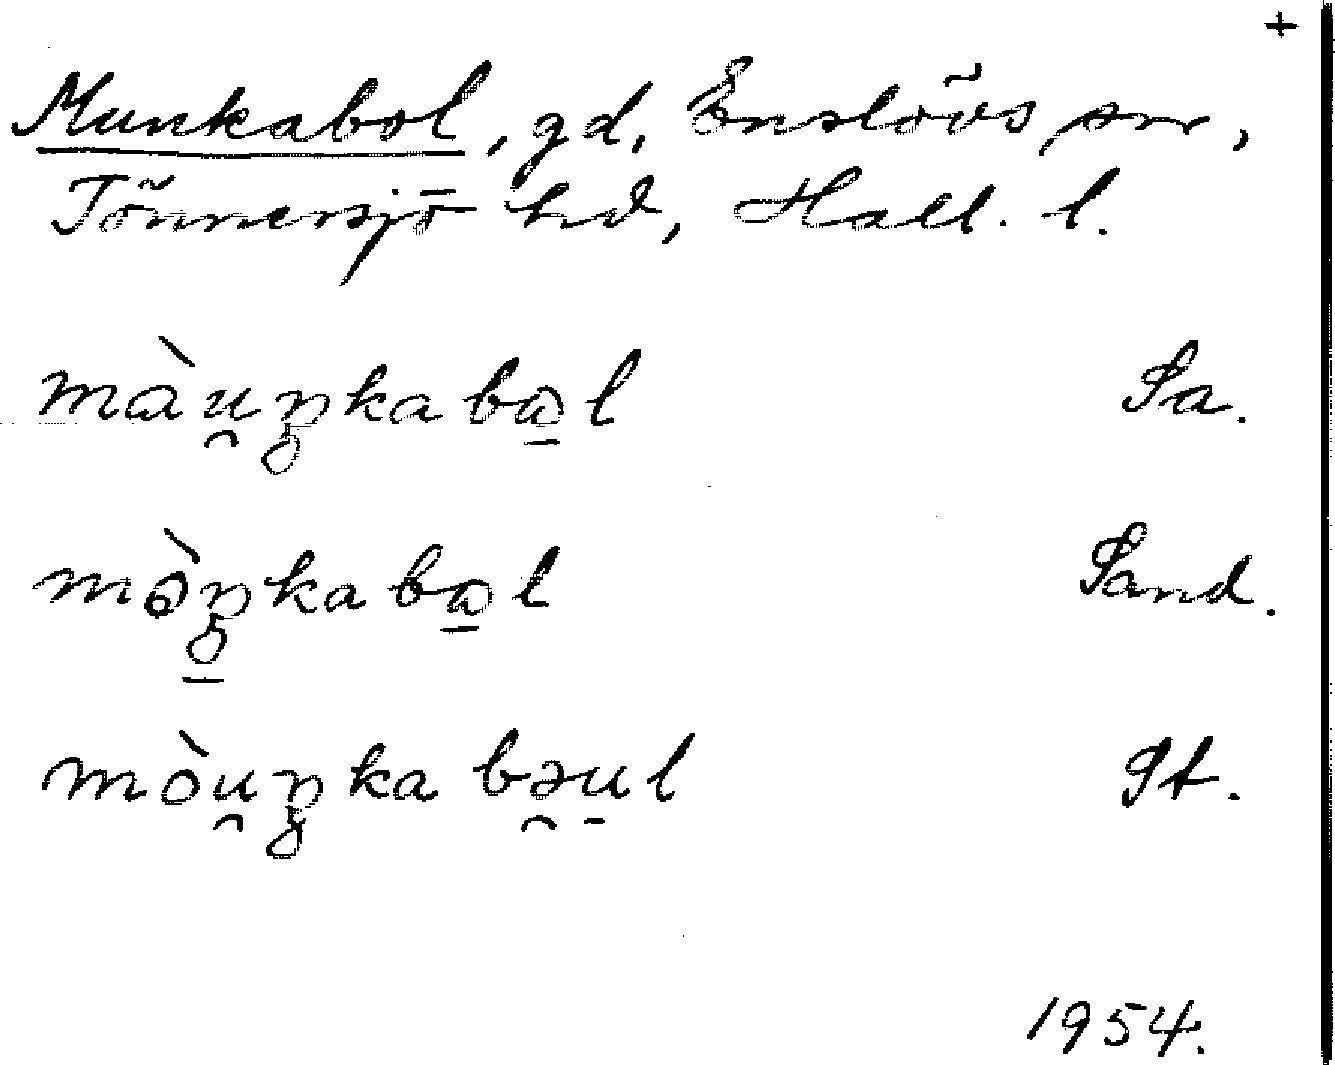 +
Munkabol, gd, Enslövs sn,
Tönnersjö hd, Hall. l.
màu̯ŋkaba̱l Sa.
mòŋ̱kaba̱l Sand.
mòu̯ŋkabə̯u̱l St.
1954.